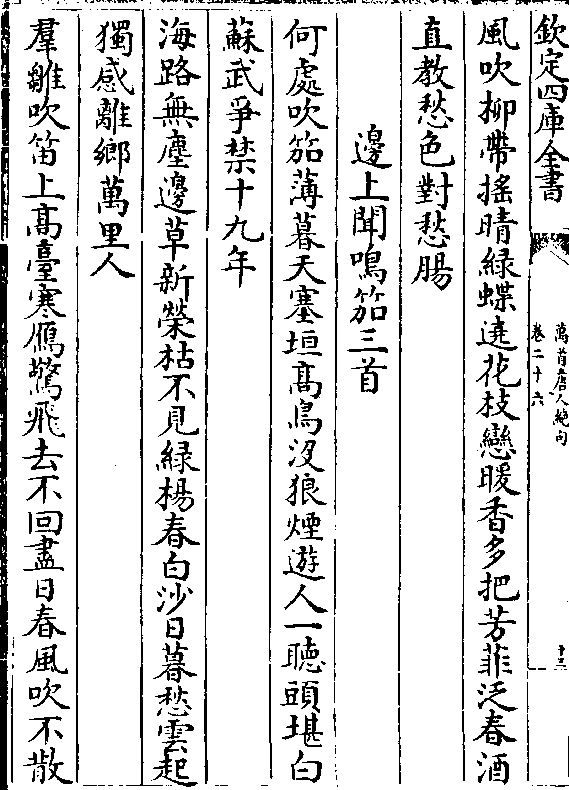 欽定四庫全書
萬首唐人絶句
卷二十六
十三
風吹柳帶摇晴緑蝶遶花枝戀暖香多把芳菲泛春酒
直教愁色對愁腸
邊上聞鳴笳三首
何處吹笳薄暮天塞垣髙鳥没狼煙遊人一聴頭堪白
蘇武爭禁十九年
海路無塵邊草新榮枯不見緑楊春白沙日暮愁雲起
獨感離鄉萬里人
羣雛吹笛上髙臺寒鴈驚飛去不回盡日春風吹不散